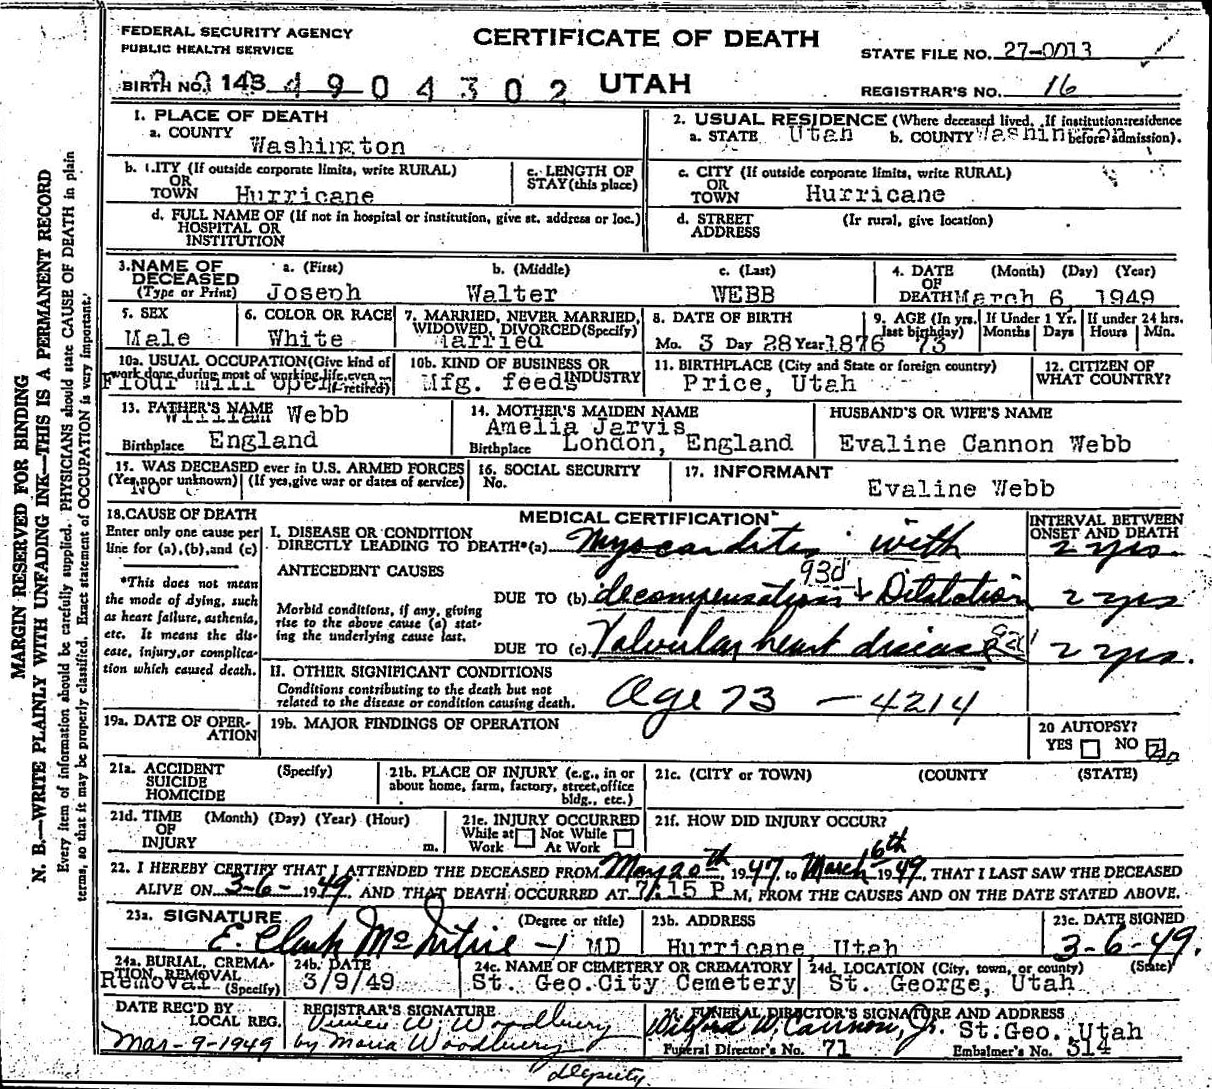 FEDERAL SECURITY AGENCY
PUBLIC HEALTH SERVICE
CERTIFICATE OF DEATH
STATE FILE NO. 27-0013
BIRTH NO. 143 4 9 0 4 3 0 2
UTAH
REGISTRAR'S NO. 16
1. PLACE OF DEATH
a. COUNTY
Washington
2. USUAL RESIDENCE (Where deceased lived. If institution:residence before admission).
a. STATE Utah b. COUNTY Washington
b. CITY (If outside corporate limits, write RURAL)
OR
TOWN Hurricane
c. LENGTH OF
STAY (this place)
c. CITY (If outside corporate limits, write RURAL)
OR
TOWN Hurricane
d. FULL NAME OF (If not in hospital or institution, give st. address or loc.)
HOSPITAL OR
INSTITUTION
d. STREET (If rural, give location)
ADDRESS
3. NAME OF DECEASED
(Type or Print)
a. (First) b. (Middle) c. (Last)
Joseph Walter WEBB
4. DATE (Month) (Day) (Year)
OF
DEATH March 6, 1949
5. SEX
Male
6. COLOR OR RACE
White
7. MARRIED, NEVER MARRIED,
WIDOWED, DIVORCED (Specify)
Married
8. DATE OF BIRTH
Mo. 3 Day 28 Year 1876
9. AGE (In yrs. last birthday)
73
If Under 1 Yr.
Months Days
If under 24 hrs.
Hours Min.
10a. USUAL OCCUPATION (Give kind of
work done during most of working life, even
if retired)
Flour mill operator
10b. KIND OF BUSINESS OR
INDUSTRY
Mfg. feeds
11. BIRTHPLACE (City and State or foreign country)
Price, Utah
12. CITIZEN OF
WHAT COUNTRY?
13. FATHER'S NAME
William Webb
Birthplace England
14. MOTHER'S MAIDEN NAME
Amelia Jarvis
Birthplace London, England
HUSBAND'S OR WIFE'S NAME
Evaline Cannon Webb
15. WAS DECEASED ever in U.S. ARMED FORCES
(Yes, no or unknown) (If yes, give war or dates of service)
NO
16. SOCIAL SECURITY
No.
17. INFORMANT
Evaline Webb
18. CAUSE OF DEATH
Enter only one cause per
line for (a), (b), and (c)
*This does not mean
the mode of dying, such
as heart failure, asthenia,
etc. It means the dis-
ease, injury, or complica-
tion which caused death.
MEDICAL CERTIFICATION
INTERVAL BETWEEN
ONSET AND DEATH
I. DISEASE OR CONDITION
DIRECTLY LEADING TO DEATH*(a) Myocarditis with 2 yrs.
ANTECEDENT CAUSES
93d
Morbid conditions, if any, giving
rise to the above cause (a) stat-
ing the underlying cause last.
DUE TO (b) decompensation & Dilatation 2 yrs
DUE TO (c) Valvular heart disease 2 yrs.
II. OTHER SIGNIFICANT CONDITIONS
Conditions contributing to the death but not
related to the disease or condition causing death.
Age 73 – 4214
19a. DATE OF OPER-
ATION
19b. MAJOR FINDINGS OF OPERATION
20 AUTOPSY?
YES NO no
21a. ACCIDENT (Specify)
SUICIDE
HOMICIDE
21b. PLACE OF INJURY (e.g., in or
about home, farm, factory, street, office
bldg., etc.)
21c. (CITY or TOWN) (COUNTY) (STATE)
21d. TIME (Month) (Day) (Year) (Hour)
OF
INJURY m.
21e. INJURY OCCURRED
While at Work Not While At Work
21f. HOW DID INJURY OCCUR?
22. I HEREBY CERTIFY THAT I ATTENDED THE DECEASED FROM May 20th, 1947, to March 6th 1949, THAT I LAST SAW THE DECEASED
ALIVE ON 3-6-, 1949, AND THAT DEATH OCCURRED AT 7:15 P M, FROM THE CAUSES AND ON THE DATE STATED ABOVE.
23a. SIGNATURE (Degree or title)
E. Clark McIntire – MD
23b. ADDRESS
Hurricane, Utah
23c. DATE SIGNED
3-6-49.
24a. BURIAL, CREMA-
TION, REMOVAL
(Specify)
Removal
24b. DATE
3/9/49
24c. NAME OF CEMETERY OR CREMATORY
St. Geo.City Cemetery
24d. LOCATION (City, town, or county) (State)
St. George, Utah
DATE REC'D BY
LOCAL REG.
Mar-9-1949
REGISTRAR'S SIGNATURE
W. Woodbury
by Maria Woodbury
deputy.
FUNERAL DIRECTOR'S SIGNATURE AND ADDRESS
Wilford W. Cannon, Jr. St.Geo. Utah
Funeral Director's No. 71 Embalmer's No. 314
MARGIN RESERVED FOR BINDING
N. B.—WRITE PLAINLY WITH UNFADING INK—THIS IS A PERMANENT RECORD
Every item of information should be carefully supplied. PHYSICIANS should state CAUSE OF DEATH in plain
terms, so that it may be properly classified. Exact statement of OCCUPATION is very important.